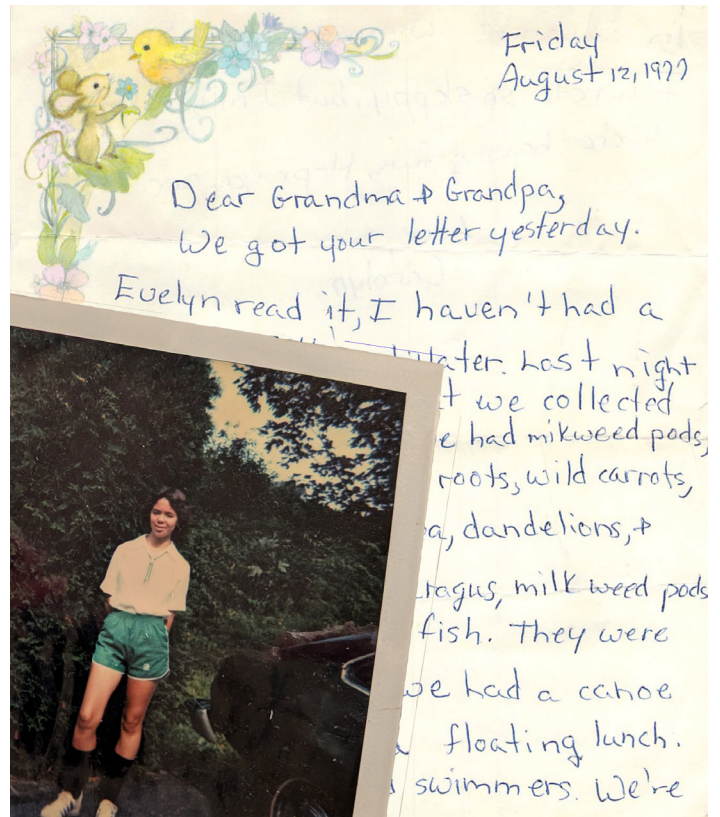 Friday
August 12, 1977
Dear Grandma & Grandpa,
We got your letter yesterday.
Evelyn read it, I haven't had a
later. Last night
we collected
had mikweed pods,
roots, wild carrots,
dandelions, &
milk weed pods
fish. They were
we had a canoe
floating lunch.
swimmers. We're